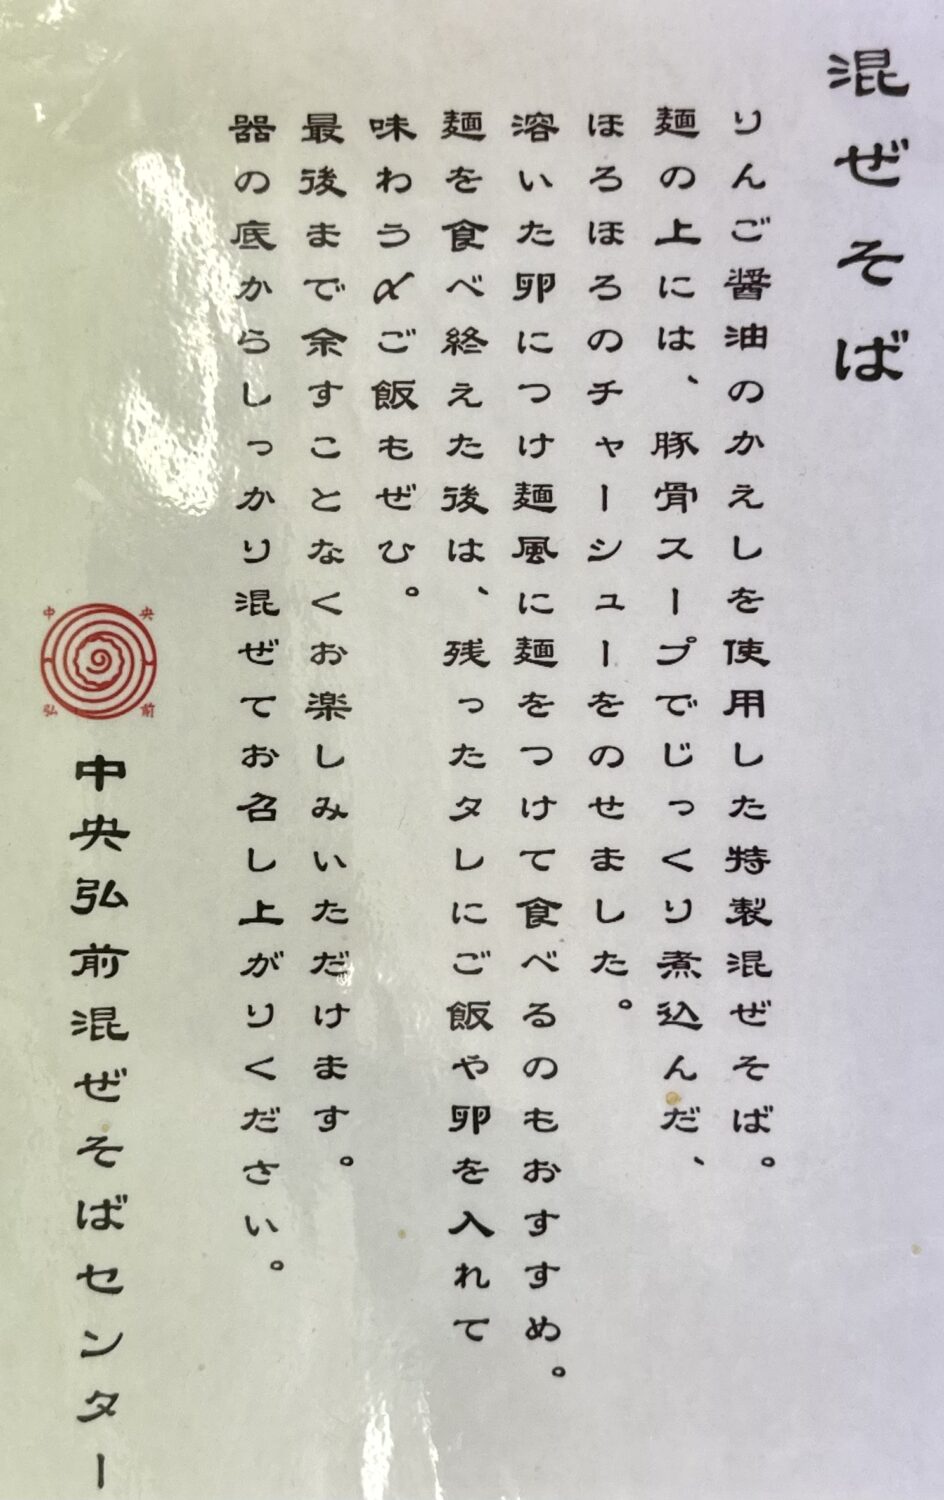 混ぜそば
りんご醤油のかえしを使用した特製混ぜそば。
麺の上には、豚骨スープでじっくり煮込んだ、
ほろほろのチャーシューをのせました。
溶いた卵につけ麺風に麺をつけて食べるのもおすすめ。
麺を食べ終えた後は、残ったタレにご飯や卵を入れて
味わう〆ご飯もぜひ。
最後まで余すことなくお楽しみいただけます。
器の底からしっかり混ぜてお召し上がりください。
中央
弘前
中央弘前混ぜそばセンター